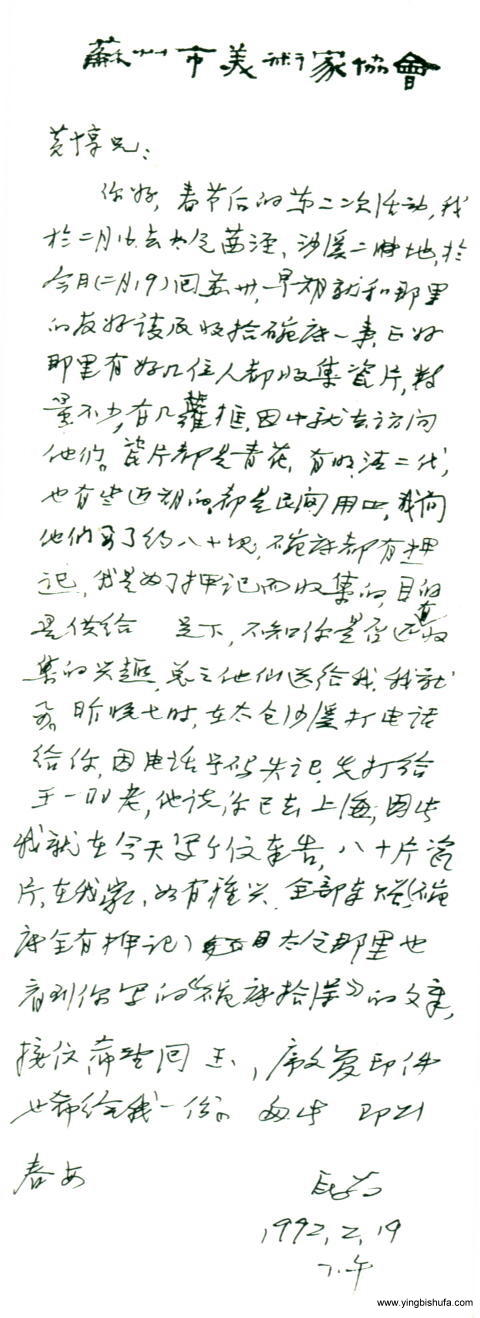 蘇州市美術家協會
黄惇兄：
你好，春节后的第二次活动，我
於二月16去太仓茜泾、沙溪二牌地，於
今月(二月19)回苏州，早期就和那里
的友好谈及收拾碗底一事，正好
那里有好几位人都收集瓷片，数
量不少，有几籮框，因此就去访问
他们。瓷片都是青花，有明、清二代，
也有些近期的，都是民间用皿，我向
他们写了约八十块，碗底都有押
记，我是为了押记而收集的，目的
是供给 足下，不知你是否还有收
集的兴趣，总之他们送给我，我就
要。昨晚七时，在太仓沙溪打电话
给你，因电话号码失记，先打给
王一羽老，他说你已去上海，因此
我就在今天写个仪奉告，八十片瓷
片，在我家，如有雅兴，全部奉赠(碗
底全有押记) 太仓那里也
看到你写的《碗底拾遗》的文章，
接仪希望回玉，序文复印件
也希给我一份。匆此 即颂
春安
1992,2,19
下午
www.yingbishufa.com